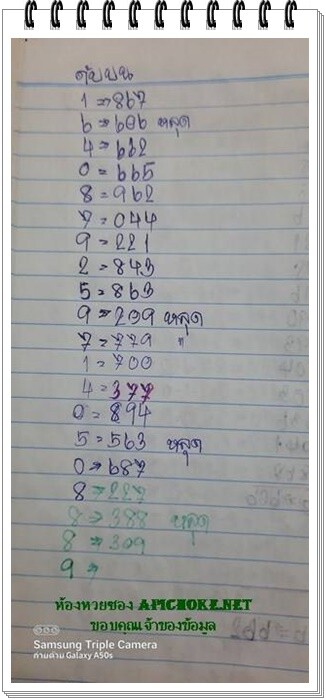 ดับบน
1 => 867
6 => 606 หลุด
4 = 662
0 = 665
8 = 962
7 = 044
9 = 221
2 = 843
5 = 863
9 = 209 หลุด
7 = 779 "
1 = 700
4 = 377
0 = 894
5 = 563 หลุด
0 => 687
8 = 227
8 => 388 หลุด
8 => 309
9 =>
ห้องหวยซอง APICHOKE.NET
ขอบคุณเจ้าของข้อมูล
Samsung Triple Camera
ถ่ายด้วย Galaxy A50s